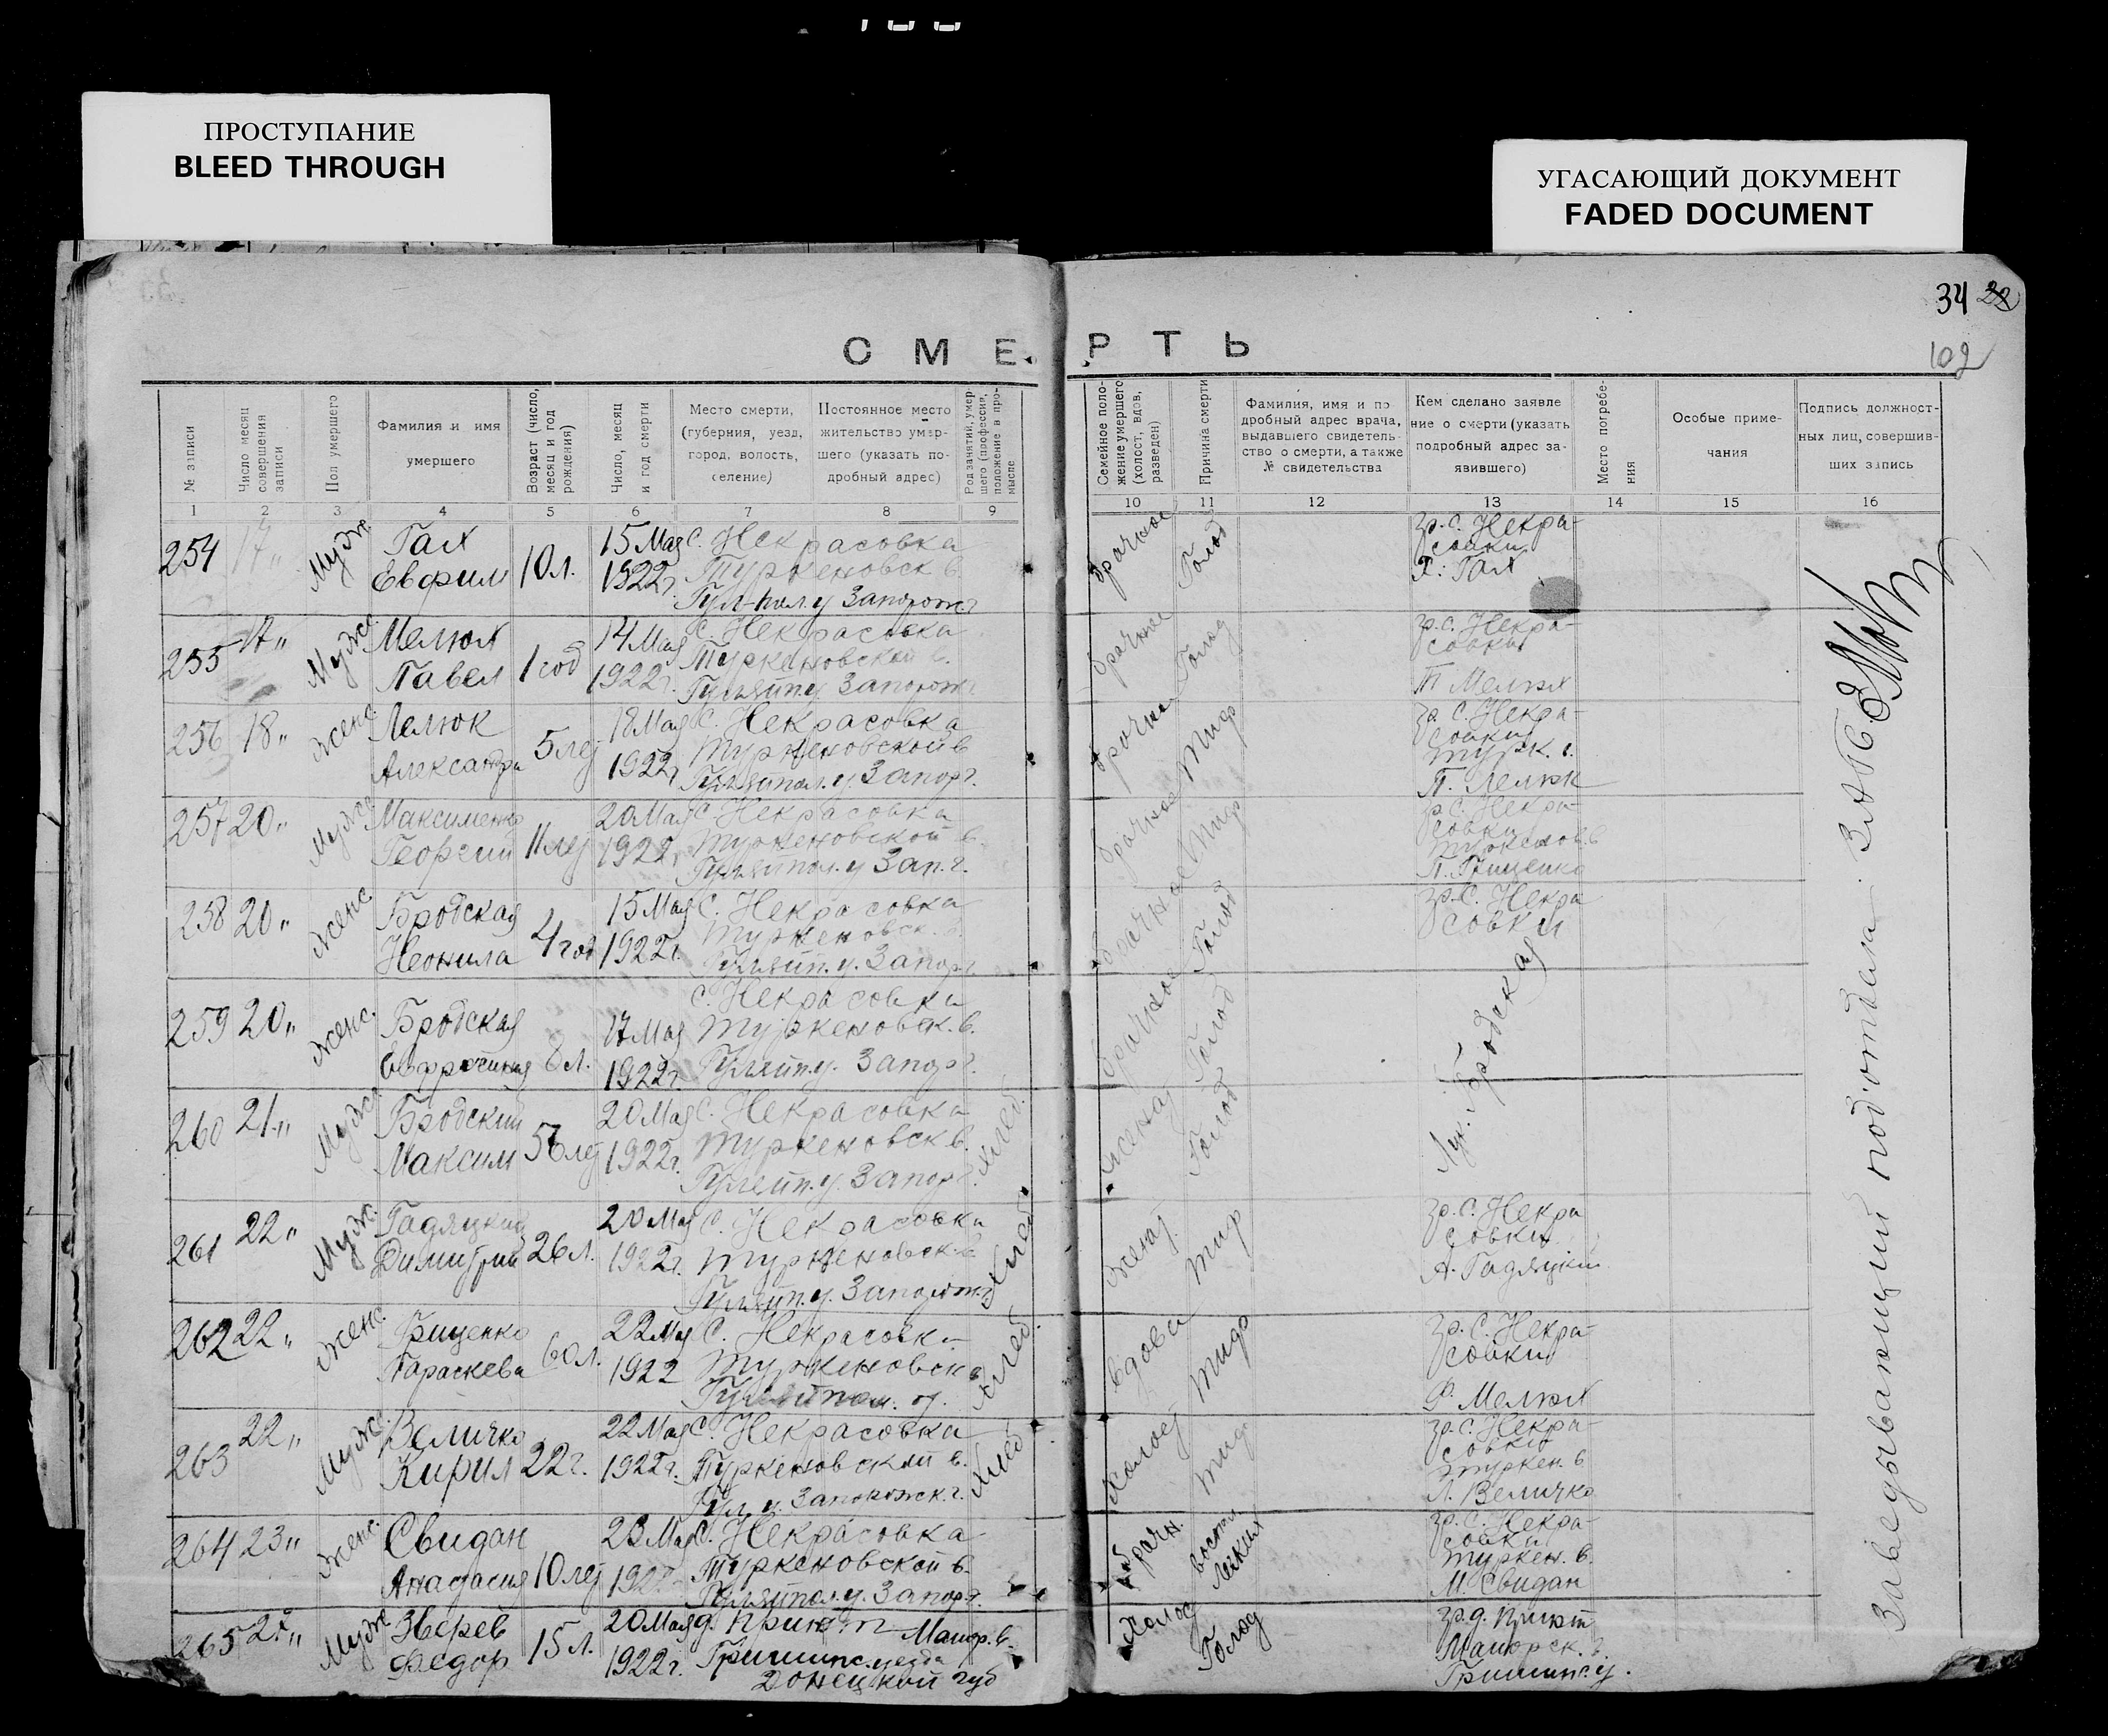 ПРОСТУПАНИЕ
BLEED THROUGH
УГАСАЮЩИЙ ДОКУМЕНТ
FADED DOCUMENT
34 22
102
СМЕРТЬ
№ записи
Число месяц совершения записи
Пол умершего
Фамилия и имя умершего
Возраст (число, месяц и год рождения)
Число, месяц и год смерти
Место смерти, (губерния, уезд, город, волость, селение)
Постоянное место жительство умершего (указать подробный адрес)
Род занятий, умершего (профессия, положение в промысле
Семейное положение умершего (холост, вдов, разведен)
Причина смерти
Фамилия, имя и подробный адрес врача, выдавшего свидетельство о смерти, а также № свидетельства
Кем сделано заявление о смерти (указать подробный адрес заявившего)
Место погребения
Особые примечания
Подпись должностных лиц, совершивших запись
1 2 3 4 5 6 7 8 9 10 11 12 13 14 15 16
254 17 „ Мужс. Гах Евфим 10 л. 15 Мая 1922 г. С. Некрасовка Туркеновск в. Гул-пол. у Запорож г. брачное Голод гр. С. Некрасовки Х. Гах
255 17 „ Мужс. Мелюх Павел 1 год 14 Мая 1922 г. С. Некрасовка Туркеновской в. Гуляйп. у Запорож г. брачное Голод гр. С. Некрасовки П Мелюх
256 18 „ женс. Лелюк Александра 5 лет 18 Мая 1922 г С. Некрасовка Туркеновской в Гуляйпол. у. Запор г. брачна Тиф гр. С. Некрасовки Турк. в. П. Лелюк
257 20 „ Мужс. Максименко Георгий 11 лет 20 Мая 1922 г С. Некрасовка Туркеновской в. Гуляйпол. у Зап. г. брачное Тиф гр. С. Некрасовки П. Грищенко
258 20 „ женс. Бродская Неонила 4 год 15 Мая 1922 г. С. Некрасовка Туркеновск. в. Гуляйп. у. Запор г. брачное Голод гр. С. Некрасовки
259 20 „ женс. Бродская Евфросиния 8 л. 17 Мая 1922 г С. Некрасовка Туркеновск. в. Гуляйп. у. Запор г. брачное Голод Лук. Бродская
260 21 „ Мужс. Бродский Максим 56 лет 20 Мая 1922 г. С. Некрасовка Туркеновск в. Гулейп. у. Запор г. хлеб. женат Голод
261 22 „ Мужс. Гадяцкий Димитрий 26 л. 20 Мая 1922 г. С. Некрасовка Туркеновск. в Гуляйп. у. Запорож г. хлеб. женат. Тиф гр. С. Некрасовки А. Гадяцкий
262 22 „ женс. Грищенко Параскева 60 л. 22 Мая 1922 С. Некрасовка Туркеновск в Гуляйпол. у. хлеб. вдова Тиф гр. С. Некрасовки Ф. Мелюх
263 22 „ Мужс. Величко Кирил 22 г. 22 Мая 1922 г. С. Некрасовка Туркеновской в. Гул. у. Запорожск. г. хлеб холост Тиф гр. С. Некрасовки Туркен. в Л. Величко
264 23 „ женс. Свидан Анадасия 10 лет 23 Мая С. Некрасовка Туркеновской в. Гуляйпол. у. Запор г. брачн. воспал легких гр. С. Некрасовки Туркен. в. М. Свидан
265 „ Мужс Зверев Федор 15 л. 20 Мая 1922 г. д. Приют Майор. в. Гришинс. уезда Донецкой губ Холос Голод гр. д. Приют Майорск. в. Гришинс. у.
Заведывающий подотдела ЗАГС